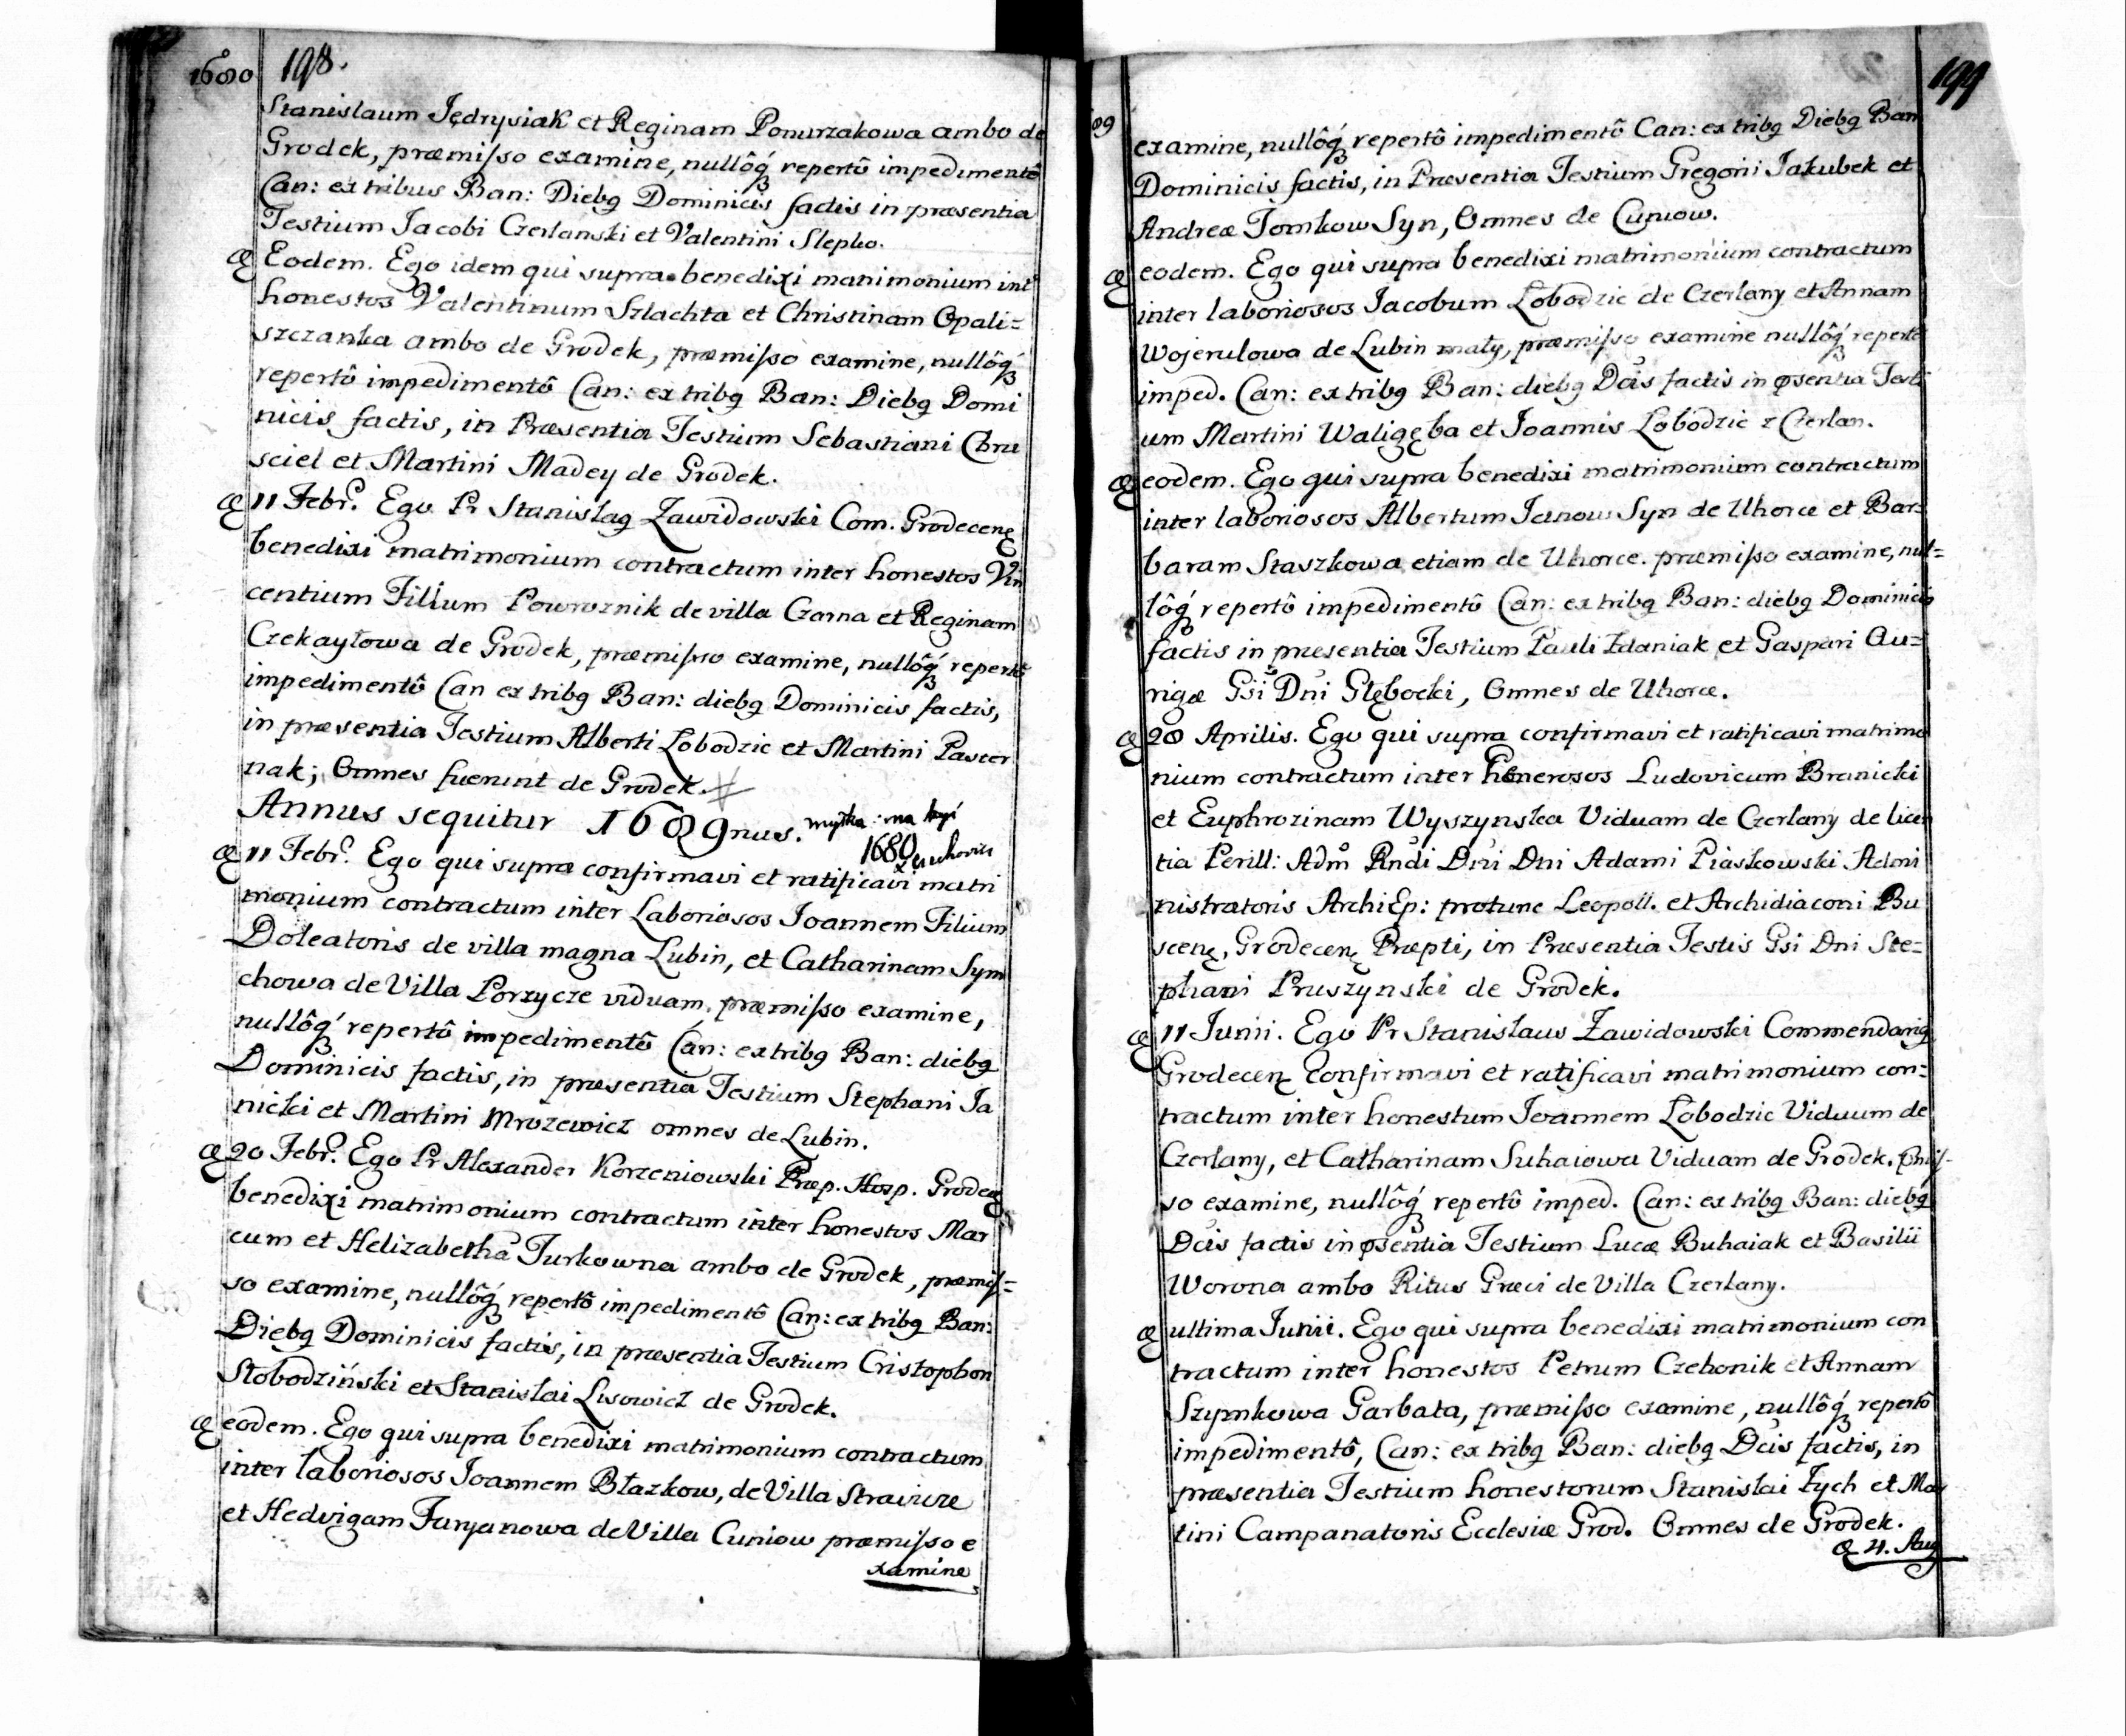 1680 198.
Stanislaum Jędrysiak et Reginam Ponurzakowa ambo de
Grodek, præmisso examine, nullôq́ꝫ repertô impedimentô
Can: ex tribus Ban: Diebq Dominicis factis in præsentia
Testium Jacobi Czerlanski et Valentini Slepko.
Æ Eodem. Ego idem qui supra benedixi matrimonium int
honestos Valentinum Szlachta et Christinam Opali=
szczanka ambo de Grodek, præmisso examine, nullôq́ꝫ
repertô impedimentô Can: ex tribq Ban: Diebq Domi
nicis factis, in Præsentia Testium Sebastiani Chru
sciel et Martini Madey de Grodek.
Æ 11 Febr. Ego Pr Stanislaq Zawidowski Com. Grodecenę
benedixi matrimonium contractum inter honestos Vin
centium Filium Powroznik de villa Czarna et Reginam
Czekayłowa de Grodek, præmisso examine, nullôq́ꝫ repertô
impedimentô Can ex tribq Ban: diebq Dominicis factis,
in præsentia Testium Alberti Łobodzic et Martini Paster
nak; Omnes fuerunt de Grodek. #
Annus sequitur 1689nus. myłka: na
1680
Æ 11 Febr. Ego qui supra confirmavi et ratificavi matri
monium contractum inter Laboriosos Joannem Filium
Doleatoris de villa magna Lubin, et Catharinam Sym
chowa de Villa Porzycze viduam, præmisso examine,
nullôq́ꝫ repertô impedimentô Can: ex tribq Ban: diebq
Dominicis factis, in præsentia Testium Stephani Ja
nicki et Martini Mrozewicz omnes de Lubin.
Æ 20 Febr. Ego Pr Alexander Korzeniowski Præp. Hosp. Grodeę
benedixi matrimonium contractum inter honestos Mar
cum et Helizabethā Turkowna ambo de Grodek, præmis=
so examine, nullôq́ꝫ repertô impedimentô Can: ex tribq Ban:
Diebq Dominicis factis, in præsentia Testium Cristophori
Słobodziński et Stanislai Lisowicz de Grodek.
Æ eodem. Ego qui supra benedixi matrimonium contractum
inter laboriosos Joannem Błazkow, de Villa
et Hedvigam Furjanowa de Villa Cuniow præmisso e
xamine
89 199
examine, nullôq́ꝫ repertô impedimentô Can: ex tribq Diebq Ban
Dominicis factis, in Præsentia Testium Gregorii Jakubek et
Andreæ Tomkow Syn, Omnes de Cuniow.
Æ eodem. Ego qui supra benedixi matrimonium contractum
inter laboriosos Jacobum Łobodzic de Czerlany et Annam
Wojerulowa de Lubin mały, præmisso examine nullôq́ꝫ repertô
imped. Can: ex tribq Ban: diebq Dcis factis in φsentia Testi
um Martini Waligęba et Joannis Łobodzic z Czerlan.
Æ eodem. Ego qui supra benedixi matrimonium contractum
inter laboriosos Albertum Janow Syn de Uhorce et Bar=
baram Staszkowa etiam de Uhorce. præmisso examine, nul=
lôq́ꝫ repertô impedimentô Can: ex tribq Ban: diebq Dominicis
factis in præsentia Testium Pauli Zdaniak et Gaspari Au=
rigæ Gsi Dni Głębocki, Omnes de Uhorce.
Æ 28 Aprilis. Ego qui supra confirmavi et ratificavi matrimo
nium contractum inter Generosos Ludovicum Branicki
et Euphrozinam Wyszynska Viduam de Czerlany de licen
tia Perill: Adm Rndi Dni Dni Adami Piaskowski Admi
nistratoris ArchiEp: protunc Leopoll. et Archidiaconi Bu
scenę, Grodecenę Præpti, in Præsentia Testis Gsi Dni Ste=
phani Pruszynski de Grodek.
Æ 11 Junii. Ego Pr Stanislaus Zawidowski Commendariq
Grodecenę confirmavi et ratificavi matrimonium con=
tractum inter honestum Joannem Łobodzic Viduum de
Czerlany, et Catharinam Suhaiowa Viduam de Grodek. φmis-
so examine, nullôq́ꝫ repertô imped. Can: ex tribq Ban: diebq
Dcis factis in φsentia Testium Lucæ Buhaiak et Basilii
Worona ambo Ritus Græci de Villa Czerlany.
Æ ultima Junii. Ego qui supra benedixi matrimonium con
tractum inter honestos Petrum Czehonik et Annam
Szymkowa Garbata, præmisso examine, nullôq́ꝫ repertô
impedimentô, Can: ex tribq Ban: diebq Dcis factis, in
præsentia Testium honestorum Stanislai Zych et Mar
tini Campanatoris Ecclesiæ Grod. Omnes de Grodek.
Æ 4. Aug